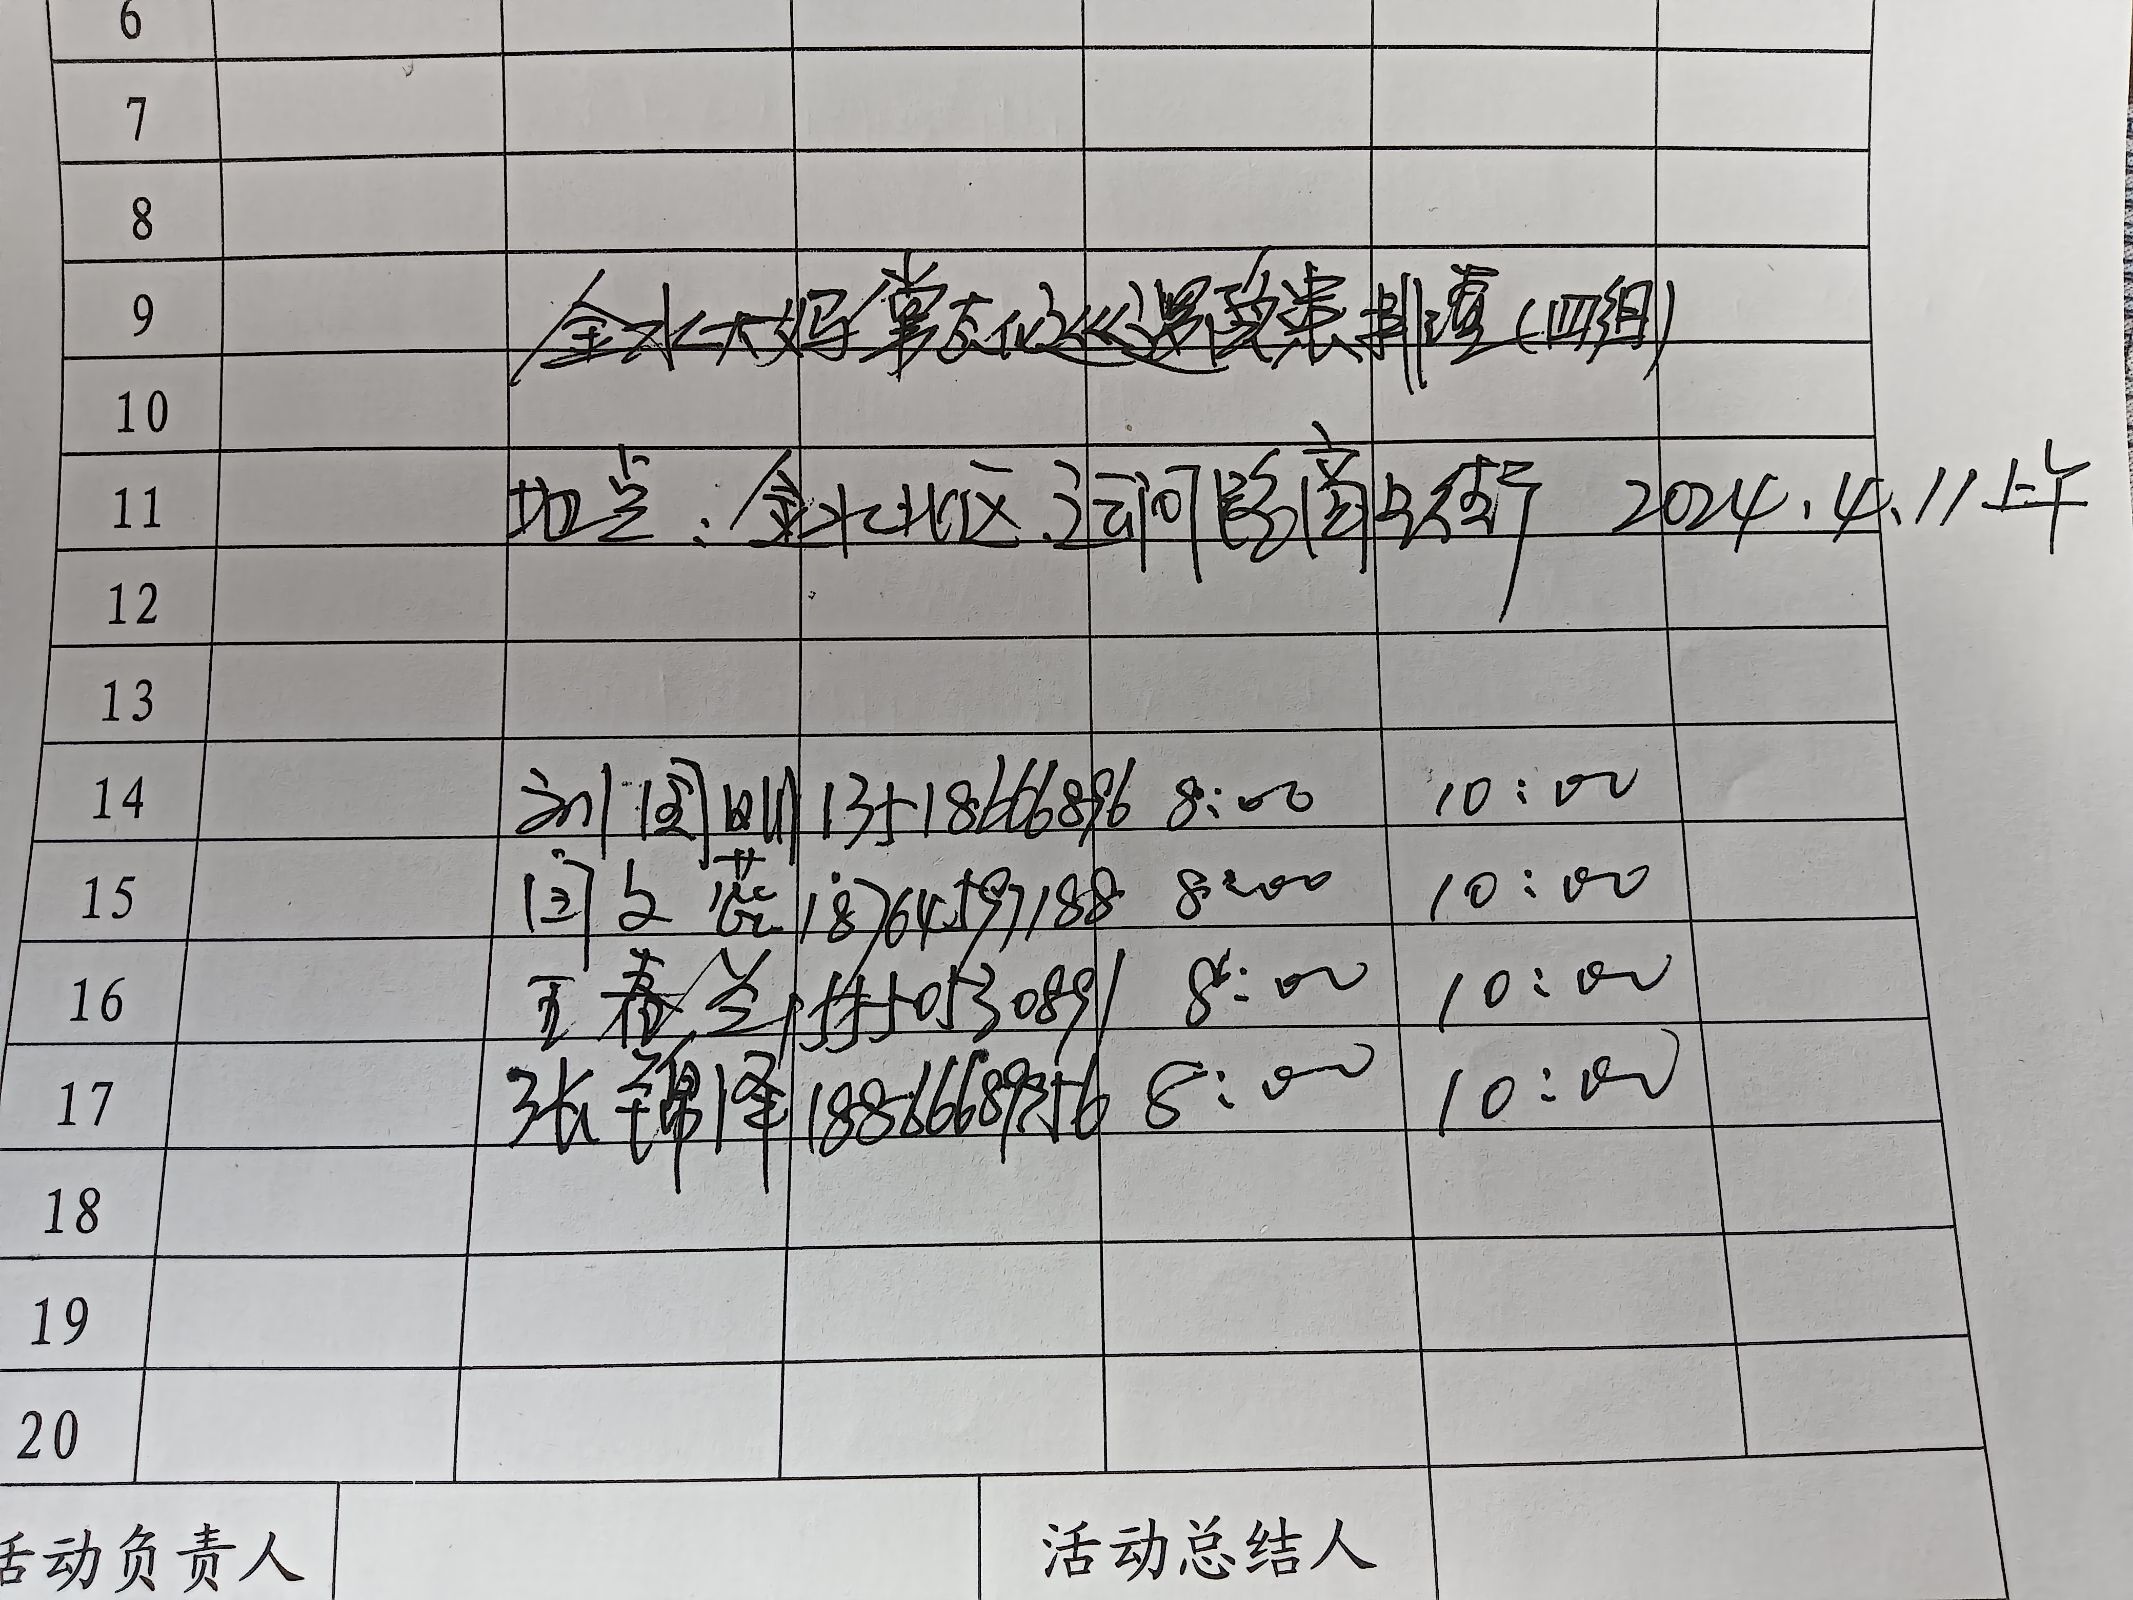 6
7
8
9 金水大妈掌
排查(四组)
10
11 地点:金水北区.运河路 2024.4.11上午
12
13
14 刘国刚 13518666896 8:00 10:00
15 闫文 18764597188 8:00 10:00
16 王春兰 8:00 10:00
17 张锦泽 8:00 10:00
18
19
20
活动负责人 活动总结人